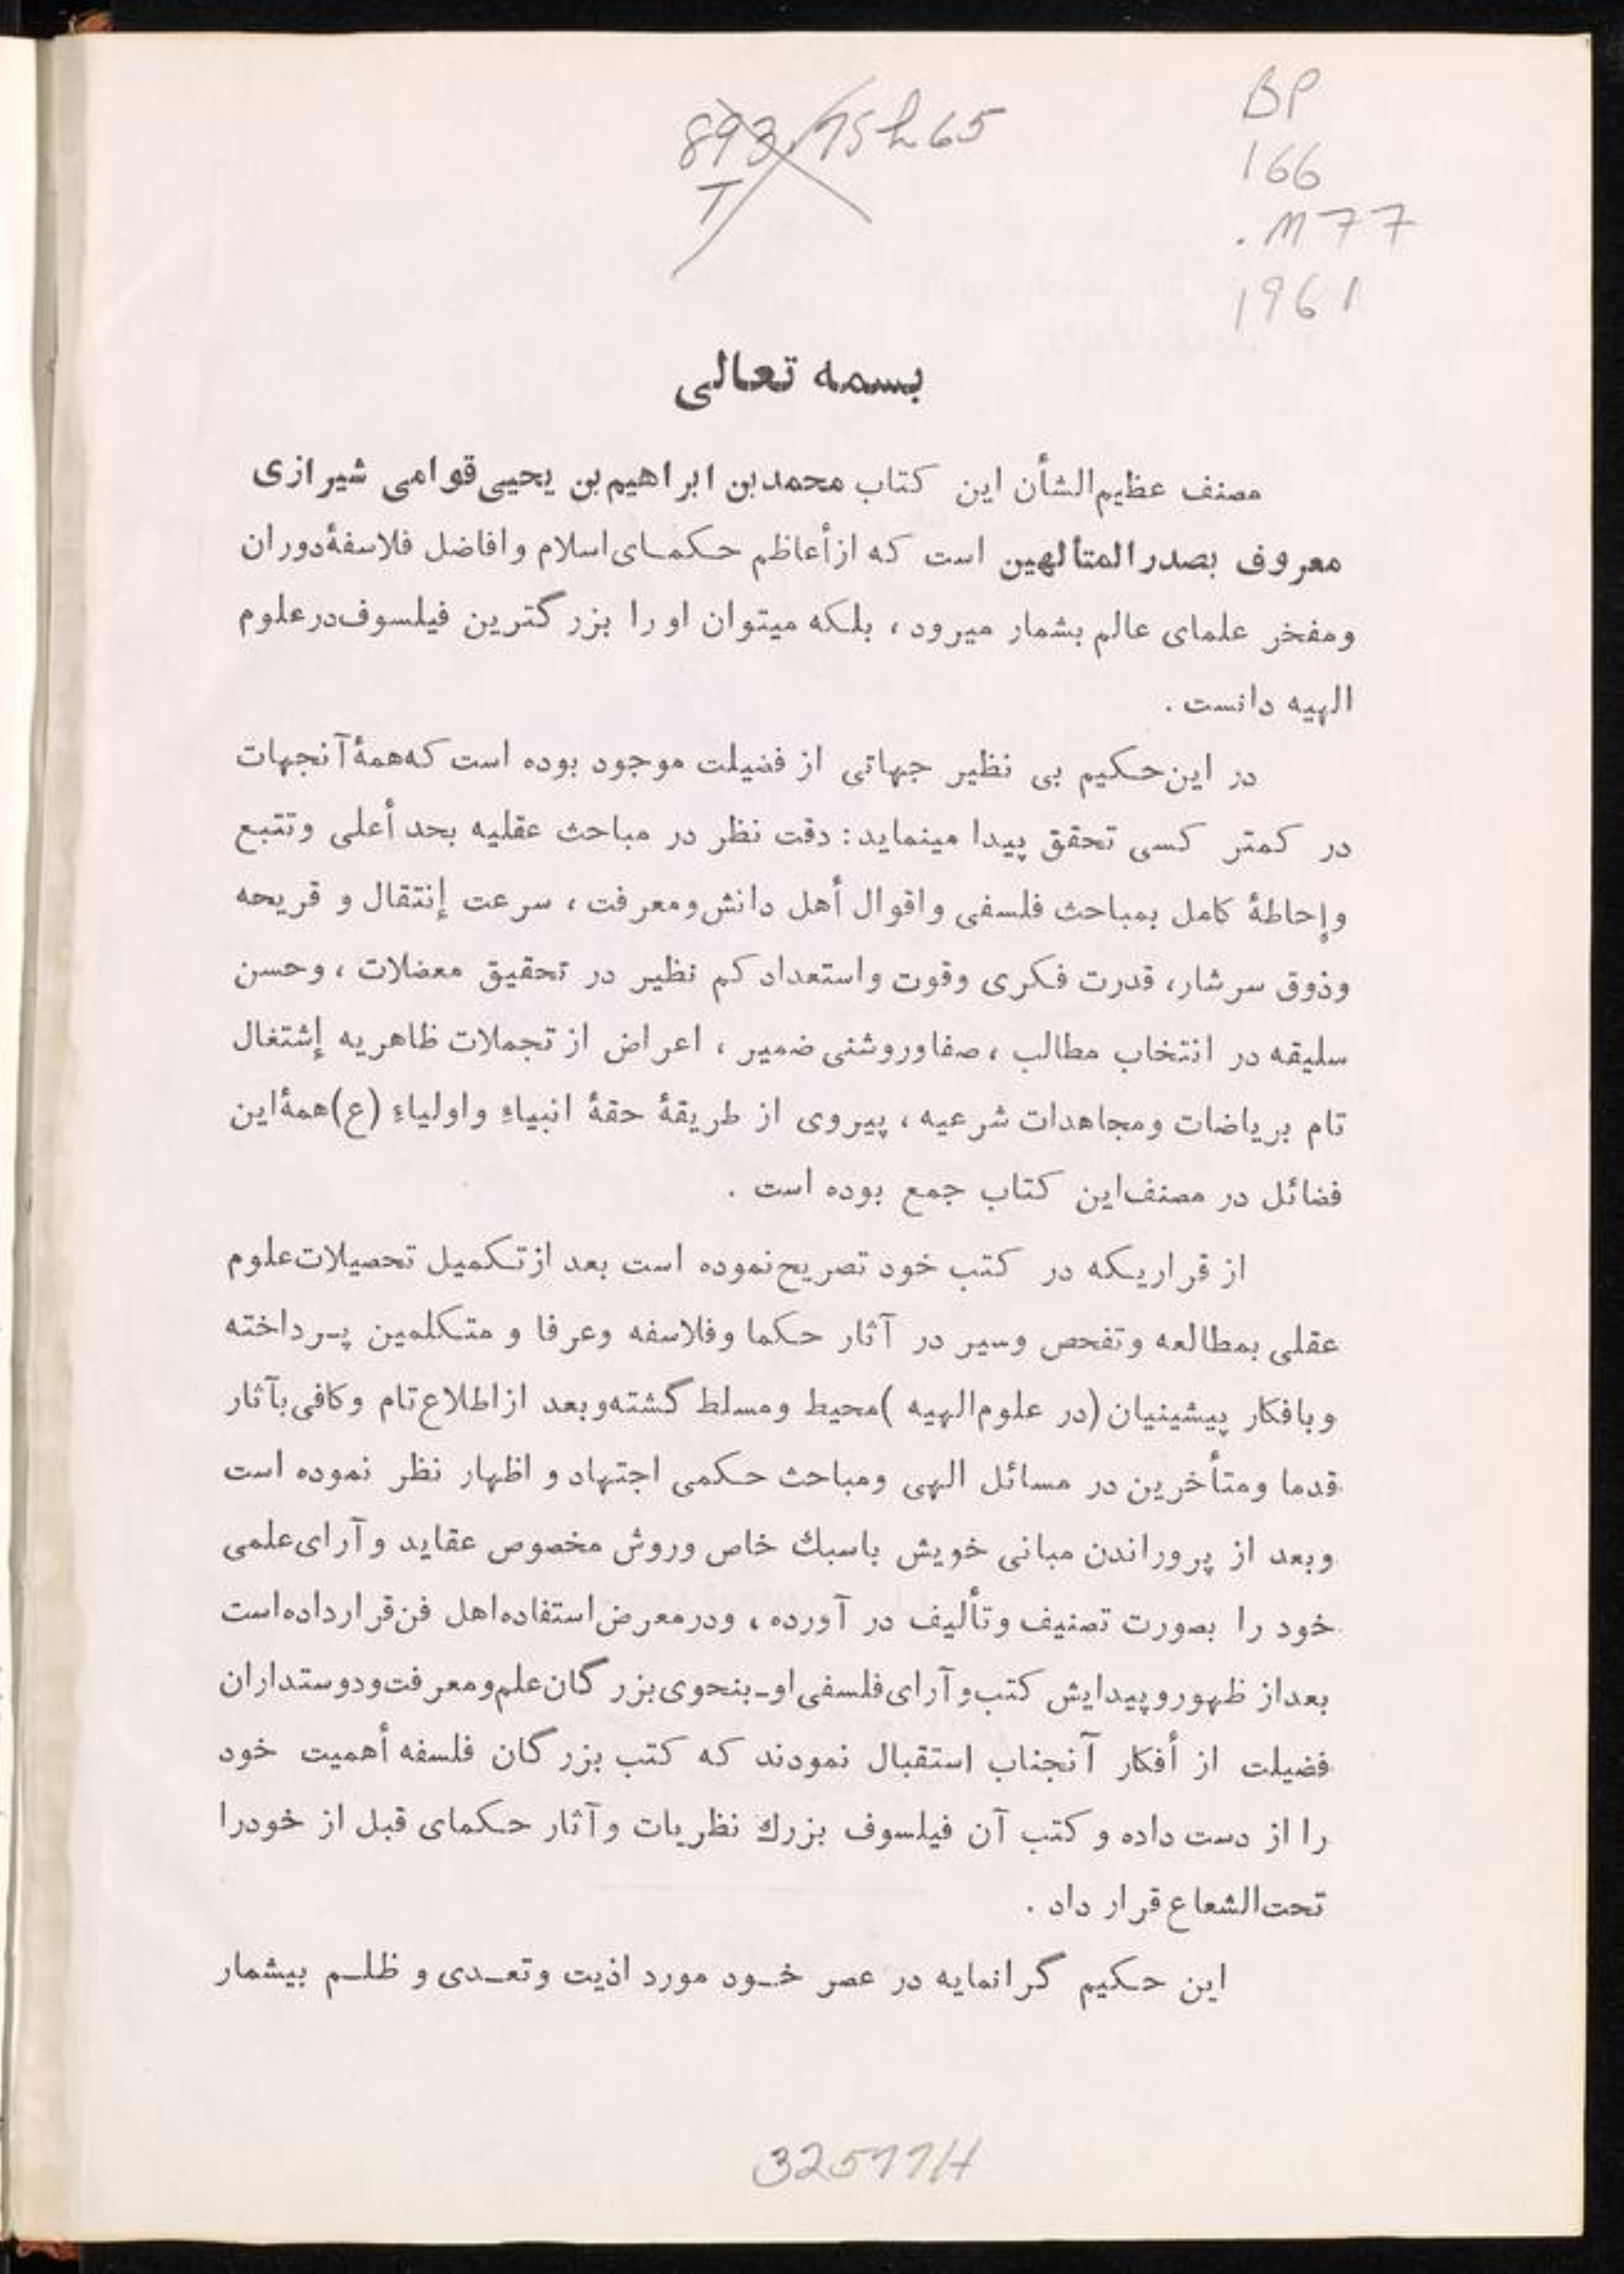 893.7Sh65
T
BP
166
.M77
1961
بسمه تعالی
مصنف عظیم‌الشأن این کتاب محمدبن ابراهیم‌بن یحیی قوامی شیرازی
معروف بصدرالمتألهین است که ازأعاظم حکمای‌اسلام وافاضل فلاسفهٔ‌دوران
ومفخر علمای عالم بشمار میرود ، بلکه میتوان اورا بزرگترین فیلسوف‌درعلوم
الهیه دانست .
در این‌حکیم بی نظیر جهاتی از فضیلت موجود بوده است که‌همهٔ‌آنجهات
در کمتر کسی تحقق پیدا مینماید: دقت نظر در مباحث عقلیه بحد أعلی وتتبع
وإحاطهٔ کامل بمباحث فلسفی واقوال أهل دانش‌ومعرفت ، سرعت إنتقال و قریحه
وذوق سرشار، قدرت فکری وقوت واستعداد کم نظیر در تحقیق معضلات ، وحسن
سلیقه در انتخاب مطالب ، صفاوروشنی ضمیر ، اعراض ازتجملات ظاهریه إشتغال
تام بریاضات ومجاهدات شرعیه ، پیروی از طریقهٔ حقهٔ انبیاءِ واولیاءِ (ع)همهٔ‌این
فضائل در مصنف‌این کتاب جمع بوده است .
از قراریکه در کتب خود تصریح‌نموده است بعد ازتکمیل تحصیلات‌علوم
عقلی بمطالعه وتفحص وسیر در آثار حکما وفلاسفه وعرفا و متکلمین پرداخته
وبافکار پیشینیان (در علوم‌الهیه )محیط ومسلط گشته‌وبعد ازاطلاع‌تام وکافی‌بآثار
قدما ومتأخرین در مسائل الهی ومباحث حکمی اجتهاد و اظهار نظر نموده است
وبعد از پروراندن مبانی خویش باسبك خاص وروش مخصوص عقاید وآرای‌علمی
خود را بصورت تصنیف وتألیف در آورده ، ودرمعرض‌استفاده‌اهل فن‌قرارداده‌است
بعداز ظهوروپیدایش کتب‌وآرای‌فلسفی‌او-بنحوی‌بزرگان‌علم‌ومعرفت‌ودوستداران
فضیلت از أفکار آنجناب استقبال نمودند که کتب بزرگان فلسفه أهمیت خود
را از دست داده و کتب آن فیلسوف بزرك نظریات وآثار حکمای قبل از خودرا
تحت‌الشعاع قرار داد .
این حکیم گرانمایه در عصر خود مورد اذیت وتعدی و ظلم بیشمار
32577H